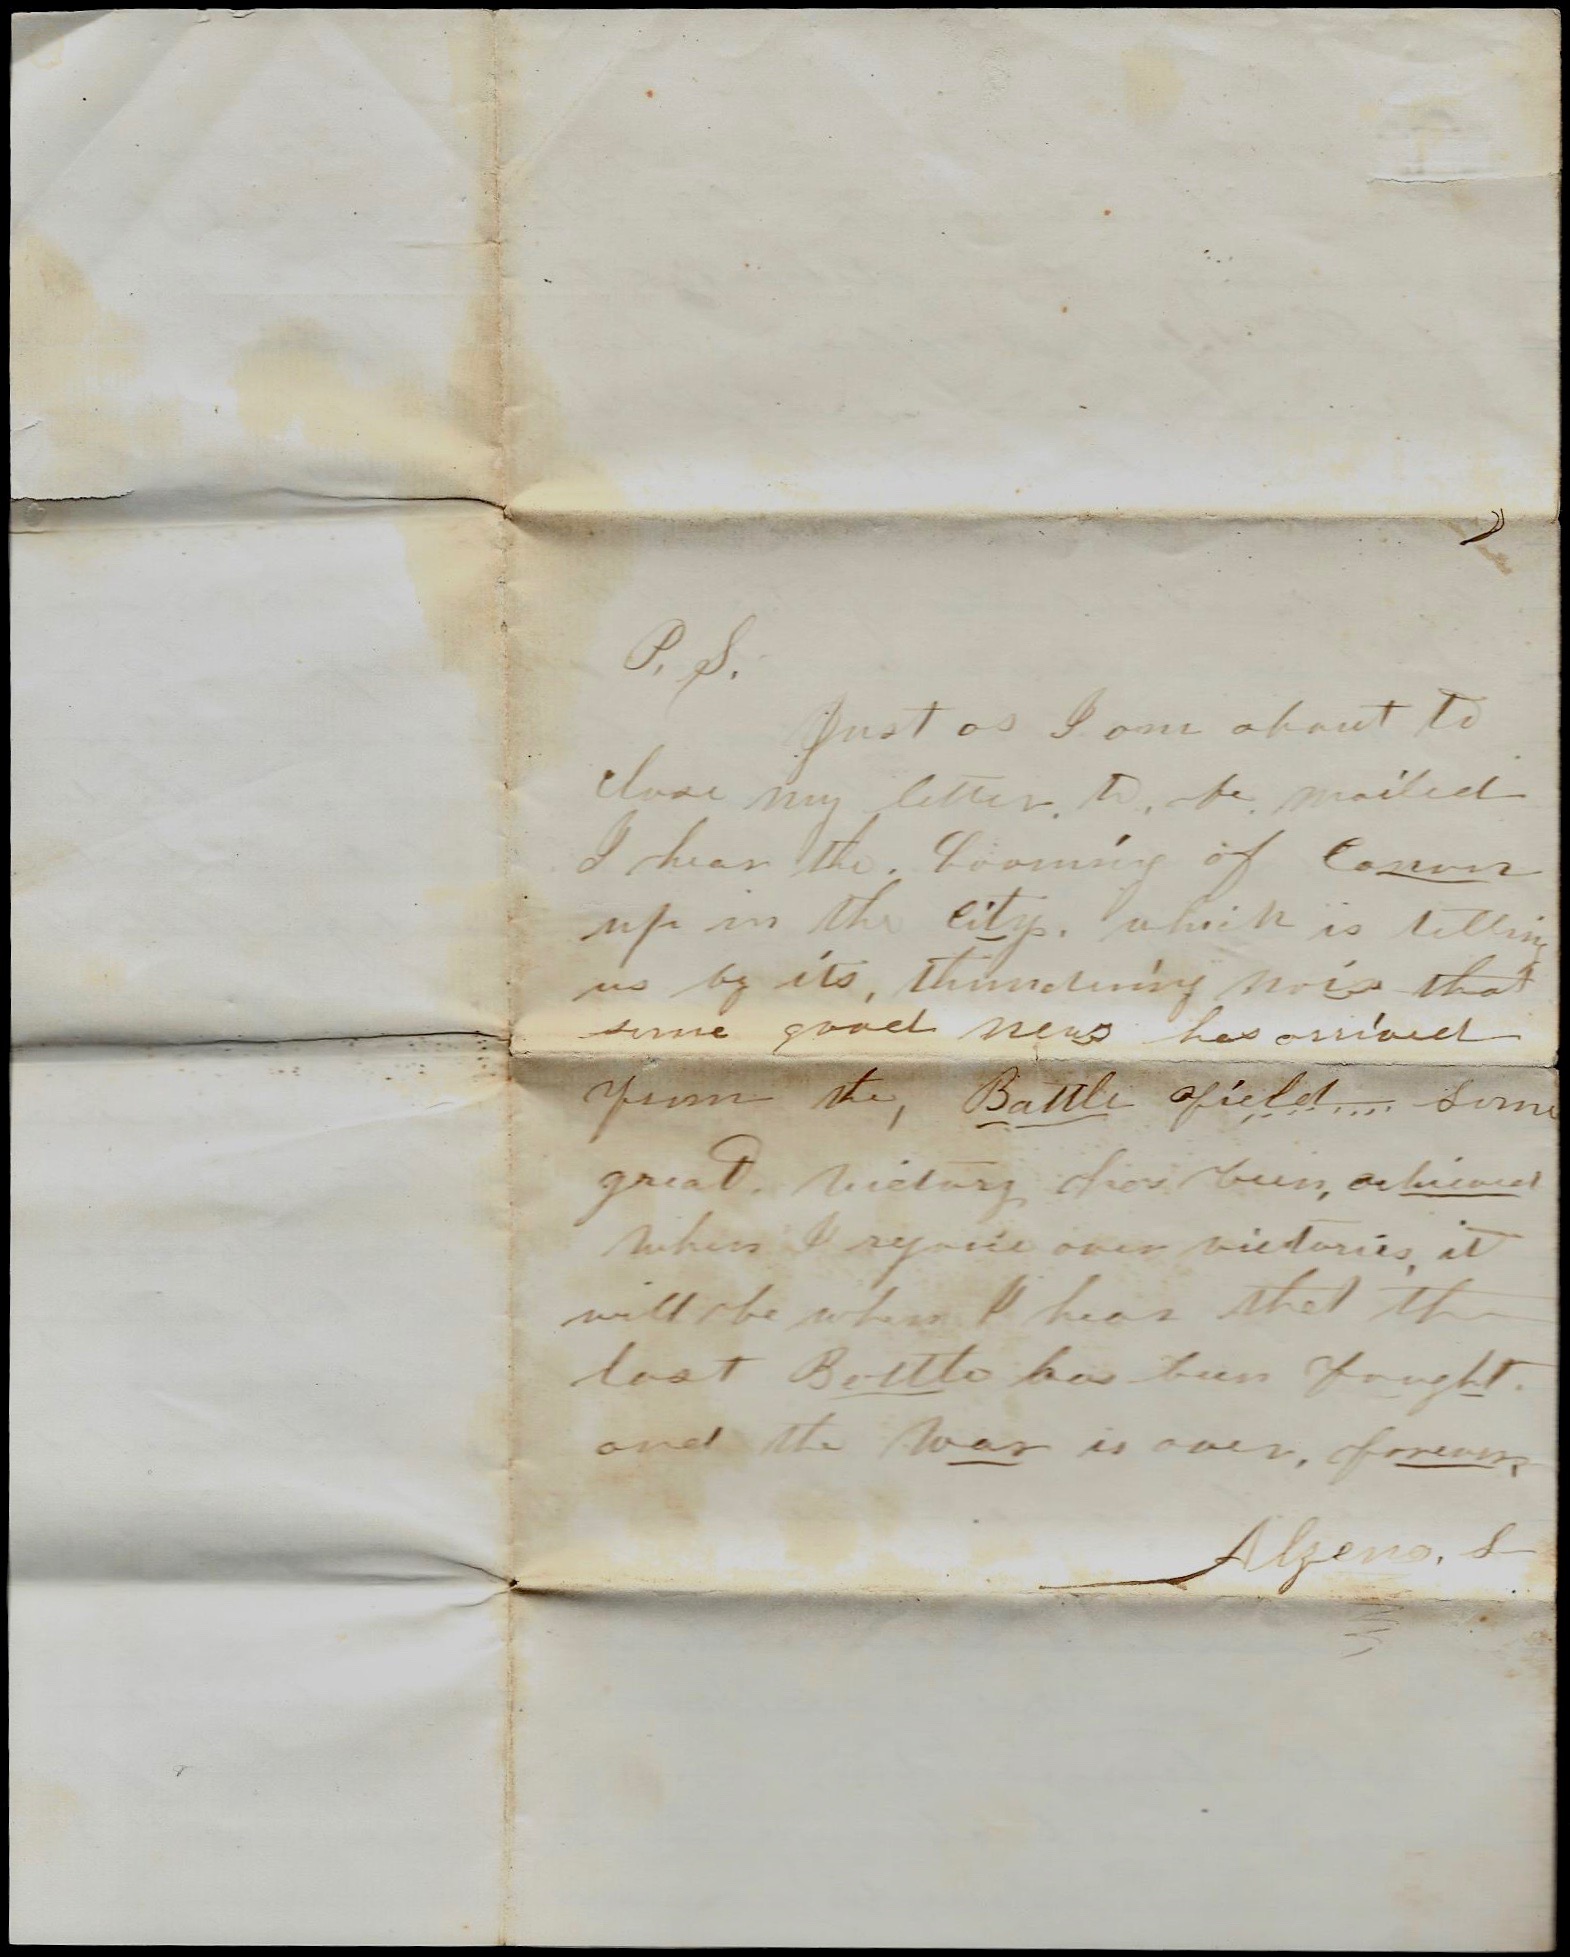 P. S.
Just as I am about to
close my letter, to, be mailed
I hear the. booming of Canon
up in the City. which is telling
us by its, thundering noise that
some good news has arrived
from the, Battle field.... some
great. victory has been, achieved
when I rejoice over victories, it
will be when I hear that the
last Battle has been fought.
and the War is over, forever,
Alzeno. S